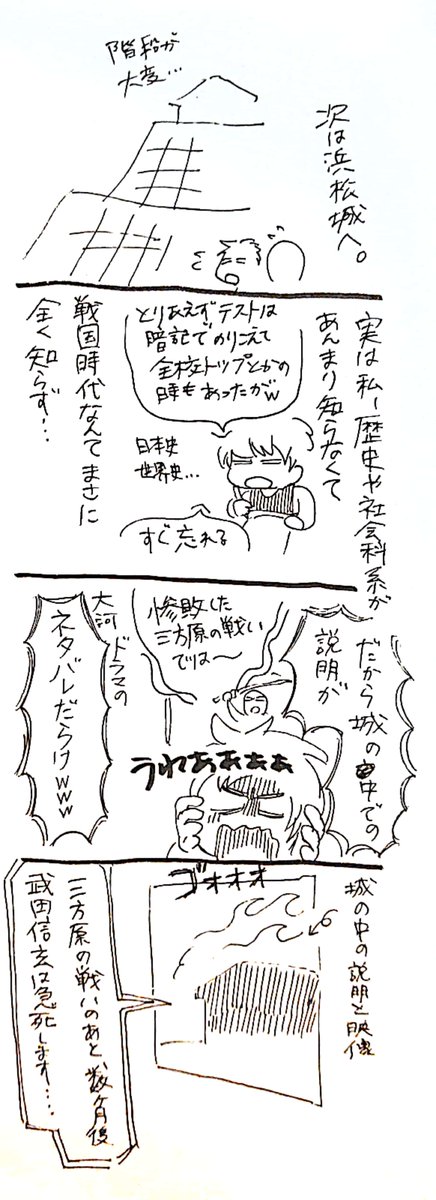 次は浜松城へ。
階段が
大変…
実は私、歴史や社会科系が
あんまり知らなくて
とりあえずテストは
暗記でのりこえて
全校トップとかの
時もあったがw
日本史
世界史…
すぐ忘れる
戦国時代なんてまさに
全く知らず…
だから城の中での
説明が
惨敗した
三方原の戦い
では〜
うわあああぁ
大河ドラマの
ネタバレだらけwww
城の中の説明と映像
ゴォオオオ
三方原の戦いのあと数ヶ月後
武田信玄は急死します…